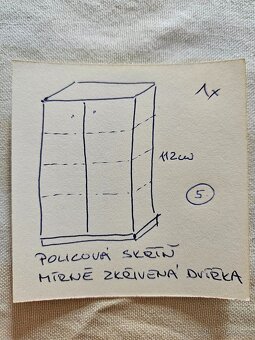 1x
112cm
5.
POLICOVÁ SKŘÍŇ
MÍRNĚ ZKŘIVENÁ DVÍŘKA